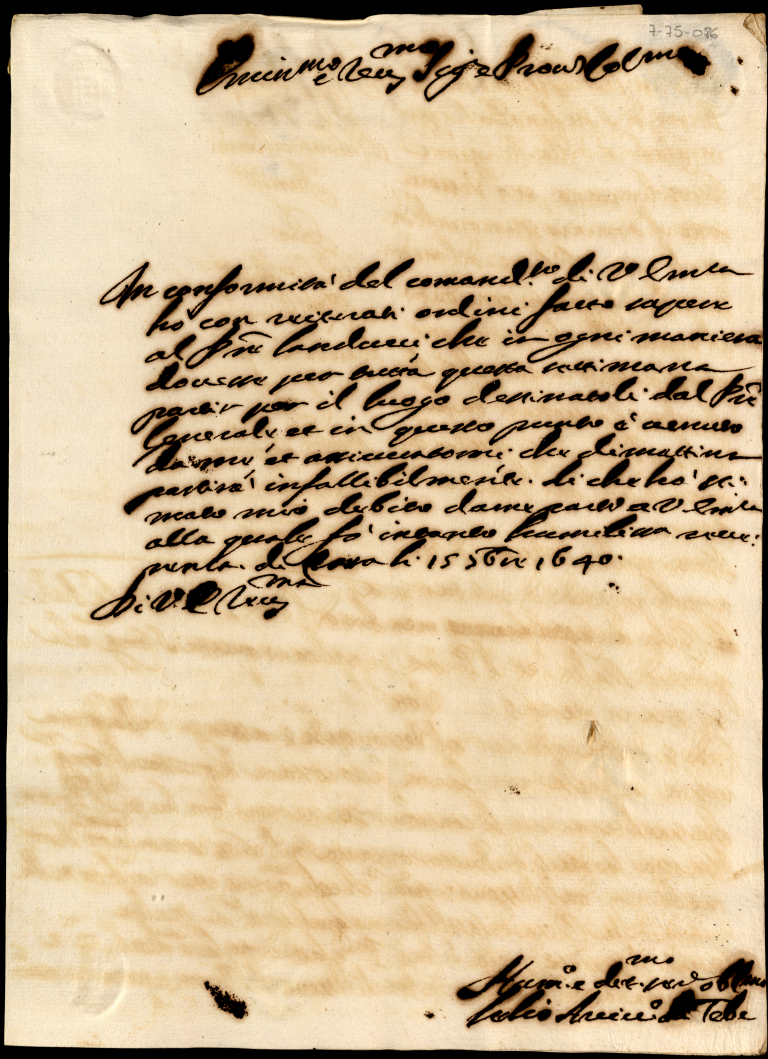 7-75-086
Emin.mo e Reu.mo Sig.e Prone Col.mo
In conformità del comand.to di V Em.za
ho con reiterati ordini fatto sapere
al P.re Landucci che in ogni maniera
douesse per tutta questa settimana
partir per il luogo destinatoli dal P.re
Generale et in questo punto è uenuto
da me, et assicuratomi che dimattina
partirà infallibilmente. di che hò sti:
mato mio debito darne parte a V Em.za
alla quale fò intanto humilissa reue:
renza. di li 15 Sbre 1640.
Di V. E Reu.ma
Hum.o e deu.mo ser.e obl.mo
di